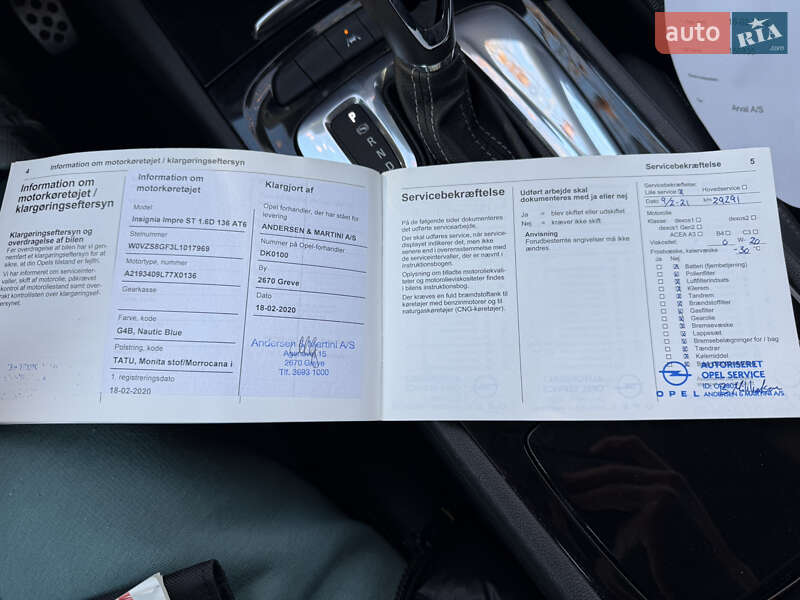 auto RIA .com
Arval A/S
P
R
N
D
4 Information om motorkøretøjet / klargøringseftersyn
Information om
motorkøretøjet /
klargøringseftersyn
Klargøringseftersyn og
overdragelse af bilen
Før overdragelse af bilen har vi gen-
nemført et klargøringseftersyn for at
sikre, at din Opels tilstand er fejlfri.
Vi har informeret om serviceinter-
valler, skift af motorolie, påkrævet
kontrol af motoroliestand samt over-
rakt kontrollisten over klargøringsef-
tersynet.
Information om
motorkøretøjet
Model
Insignia Impre ST 1.6D 136 AT6
Stelnummer
W0VZS8GF3L1017969
Motortype, nummer
A2193409L77X0136
Gearkasse
Farve, kode
G4B, Nautic Blue
Polstring, kode
TATU, Monita stof/Morrocana i
1. registreringsdato
18-02-2020
Klargjort af
Opel forhandler, der har stået for
levering
ANDERSEN & MARTINI A/S
Nummer på Opel-forhandler
DK0100
By
2670 Greve
Dato
18-02-2020
Andersen & Martini A/S
Agenavej 15
2670 Greve
Tlf. 3693 1000
Servicebekræftelse 5
Servicebekræftelse
På de følgende sider dokumenteres
det udførte servicearbejde.
Der skal udføres service, når service-
displayet indikerer det, men ikke
senere end i overensstemmelse med
de serviceintervaller, der er nævnt i
instruktionsbogen.
Oplysning om tilladte motoroliekvali-
teter og motorolieviskositeter findes i
bilens instruktionsbog.
Der kræves en fuld brændstoftank til
køretøjer med benzinmotorer og til
naturgaskøretøjer (CNG-køretøjer).
Udført arbejde skal
dokumenteres med ja eller nej
Ja = blev skiftet eller udskiftet
Nej = kræver ikke skift
Anvisning
Forudbestemte angivelser må ikke
ændres.
Servicebekræftelse:
Lille service Hovedservice
Dato 9/2-21 km 29291
Motorolie
Klasse: dexos1 dexos2
dexos1 Gen2
ACEA A3 B4 C3
Viskositet: 0 W- 20
Frostvæske, kølervæske -30 °C
Ja Nej
Batteri (fjernbetjening)
Pollenfilter
Luftfilterindsats
Kilerem
Tandrem
Brændstoffilter
Gasfilter
Gearolie
Bremsevæske
Bremsebelægninger for / bag
Lappesæt
Tændrør
Kølemiddel
AUTORISERET
OPEL SERVICE
OPEL ANDERSEN & MARTINI A/S